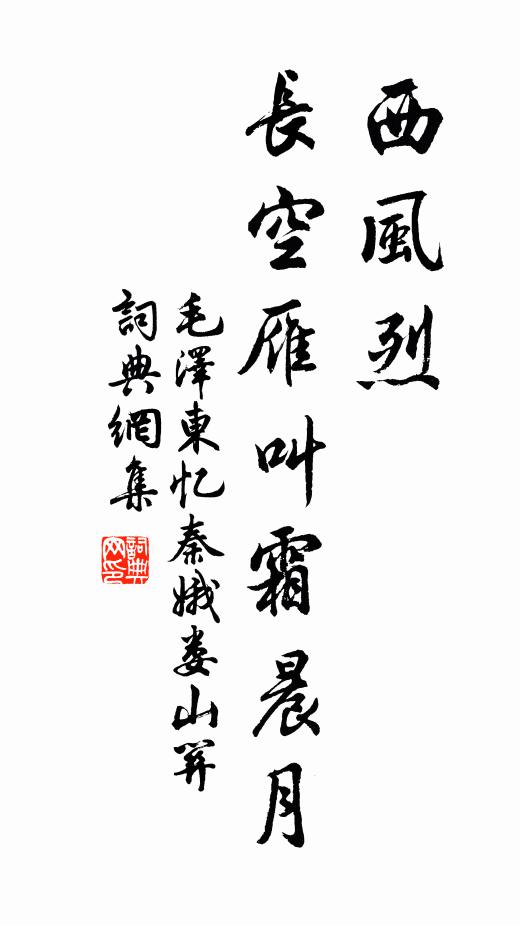 西風烈
長空雁叫霜晨月
毛澤東忆秦娥娄山関
詞典網集
詞典网印